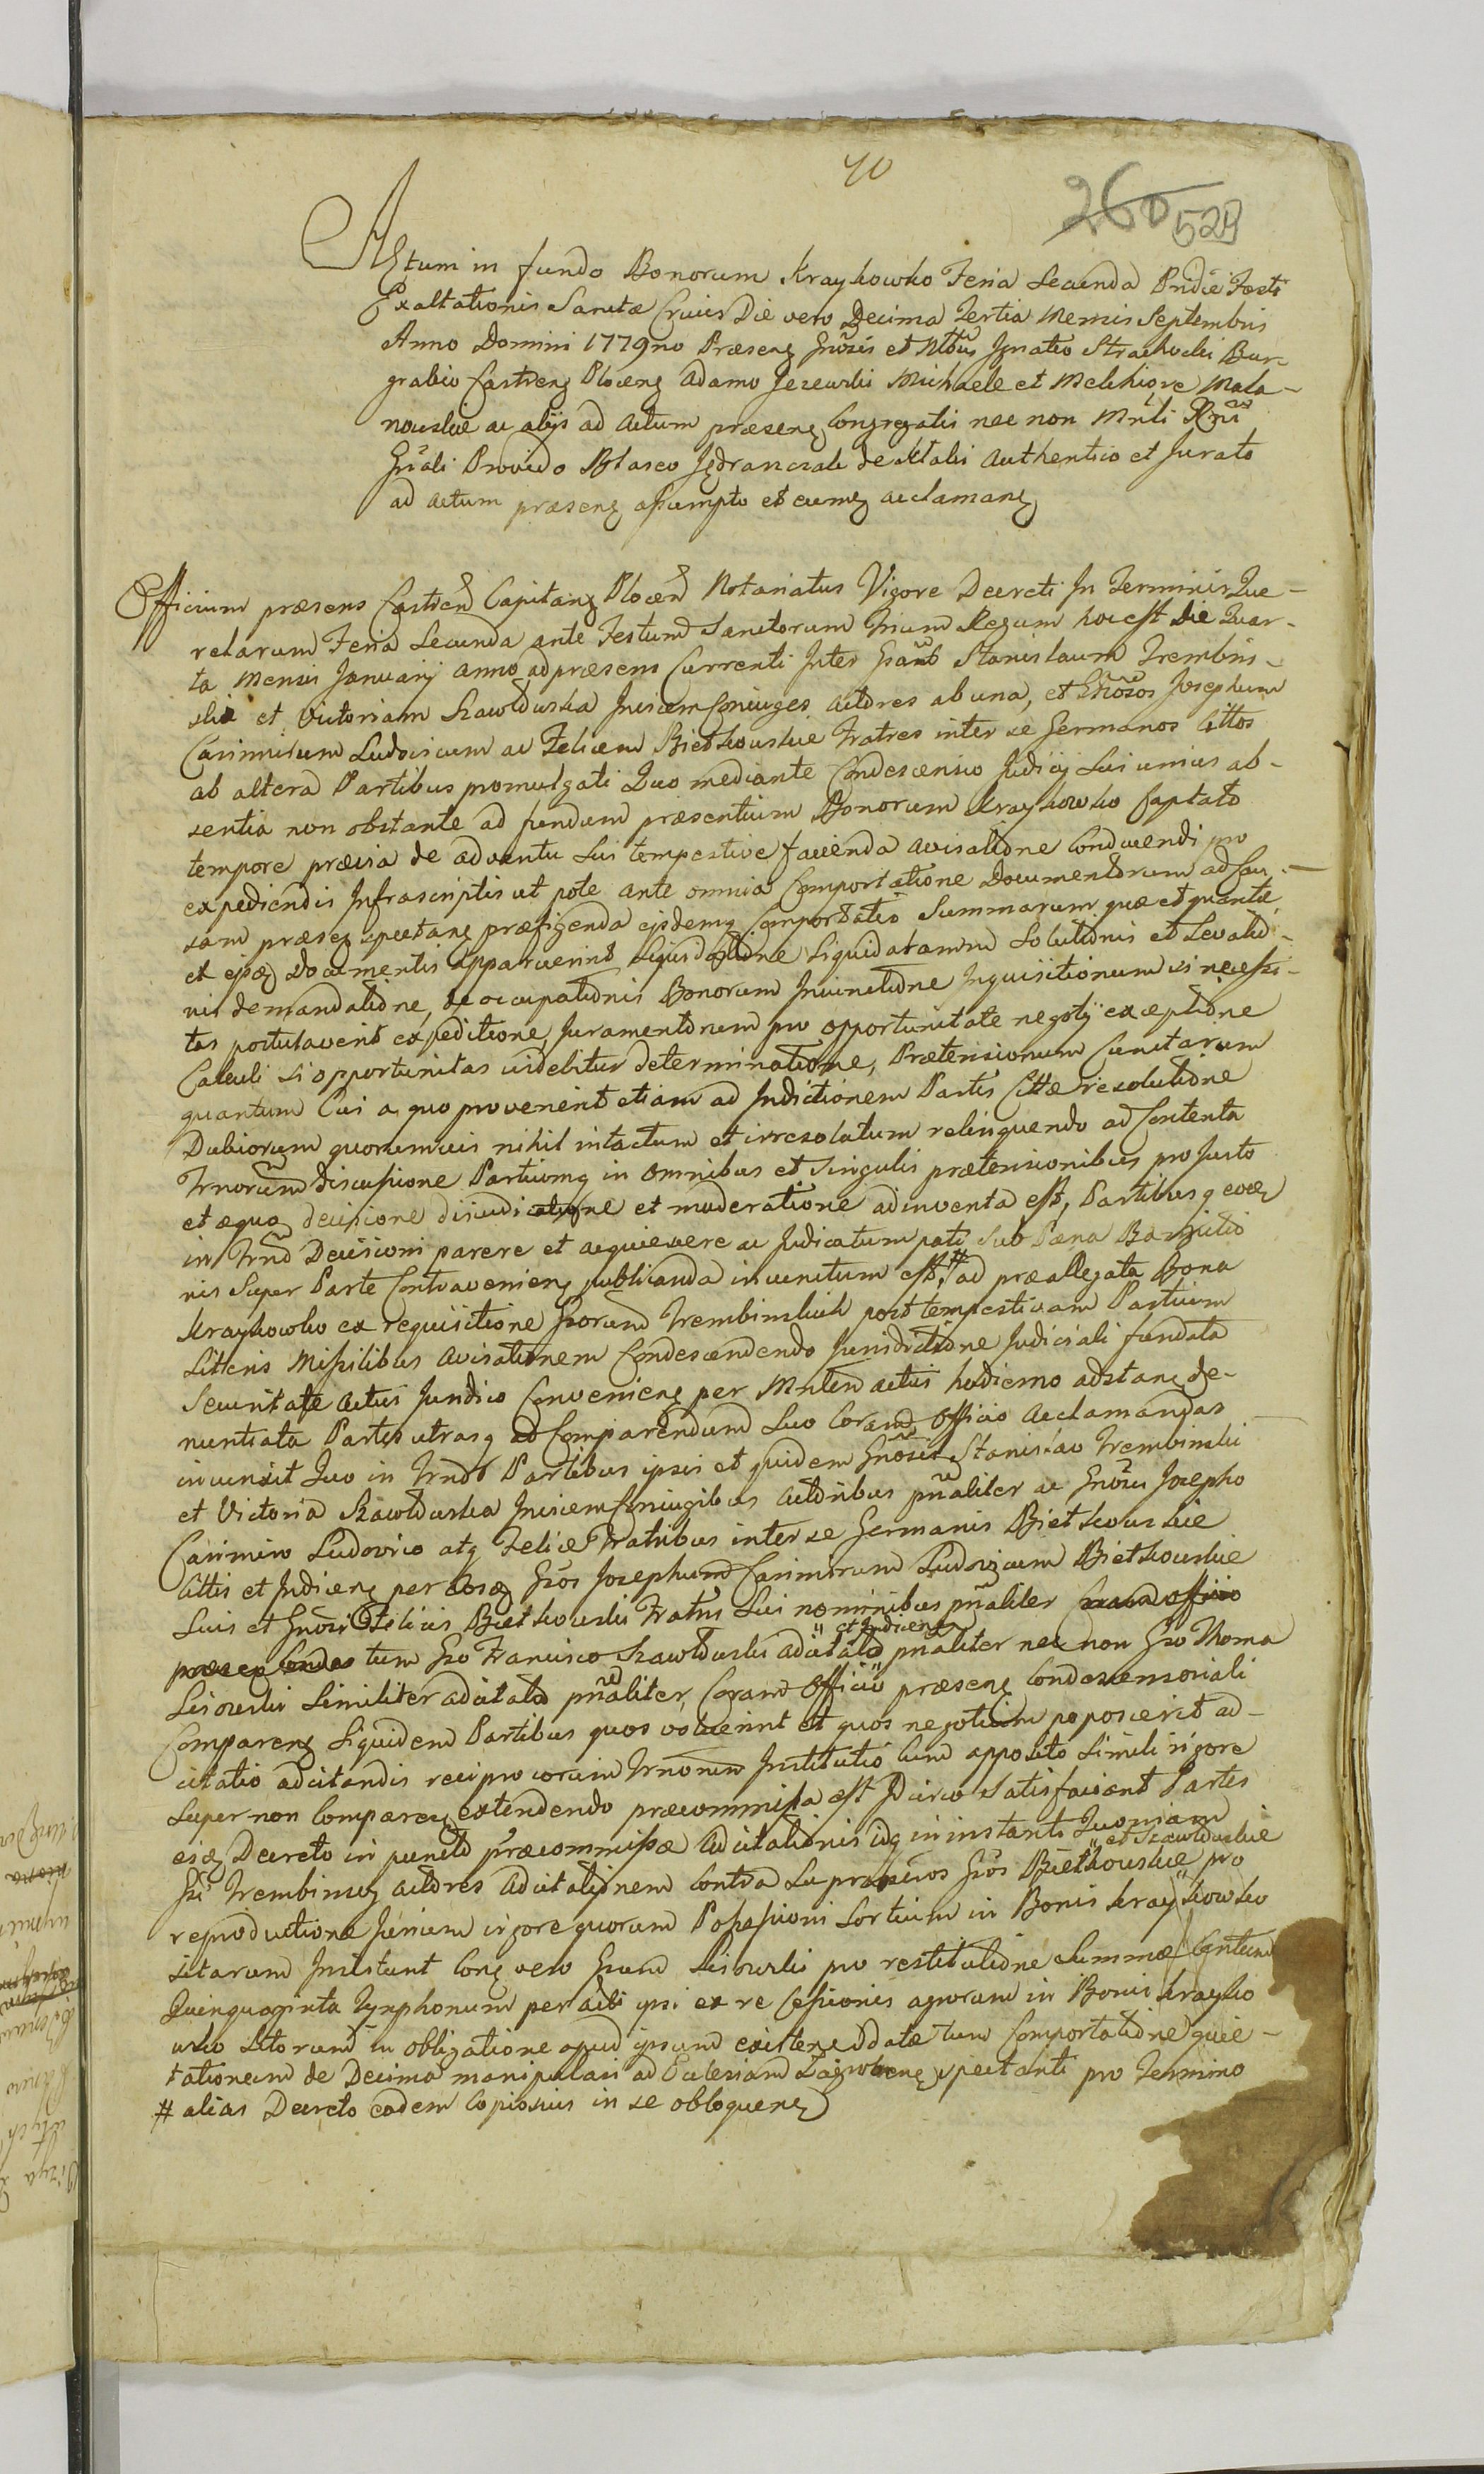 40
260 529
Actum in fundo Bonorum Kraykowko Feria Secunda Pridie Festi
Exaltationis Sanctæ Crucis Die vero Decima Tertia Mensis Septembris
Anno Domini 1779no Præsens Gnosis et Nobus Ignatio Strachocki Bur-
grabio Castrens Plocens Adamo Jezewski Michaele et Melchiore Mala-
nowskie ac aliis ad Actum præsens Congregatis nec non Mrsli Rgni
Gnali Provido Blasco de Stalis Authentico et Jurato
ad actum præsens assumpto et eumq acclamans
Officium præsens Castren Capitans Plocen Notariatus Vigore Decreti In Terminis Que-
relarum Feria Secunda ante Festum Sanctorum Trium Regum hoc est Die Quar-
ta Mensis Januarij anno ad præsens Currenti Inter Stanislaum Trembins-
ski et Victoriam Szawłdwska Invicem Coniuges Actores ab una, et Gnosos Josephum
Casimirum Ludovicum ac Felicem Bietkowskie Fratres inter se Germanos Cittos
ab altera Partibus promulgati Quo mediante Condescensio Judicij Sui unius ab-
sentia non obstante ad fundum præsentium Bonorum Kraykowko Captato
tempore prævia de adventu Sui tempestive facienda avisatione Conducendi pro
expediendis Infrascriptis ut pote ante omnia Comportatione Documentorum ad Cau-
sam præsens spectans præfigenda ejsdemq Comportatis Summarum quæ et quantæ
et ejsdq Documentis apparuerint Liquidatione Liquidatarum Solutionis et Levatio-
nis demandatione, de occupationis Bonorum Inquisitionum si necessi-
tas postulaverit expeditione, Juramentorum pro opportunitate negotij exceptione
Calculi si opportunitas videbitur determinatione, Prætensionum Cunctarum
quantum Cui a quo provenerit etiam ad Indictionem Partis Cittæ resolutione
Dubiorum quorumvis nihil intactum et irresolutum relinquendo ad Contenta
Trnorum discussione Partiumq in omnibus et Singulis prætensionibus pro Justo
et æquo decisione dijudicatione et moderatione adinventa est, Partibusq
in Trno Decisioni parere et acquiescere ac Judicatum pati Sub Pæna Bannitio
nis Super Parte Contraveniens publicanda invenitum est, # ad præallegata Bona
Kraykowko ex requisitione Gsorum Trembinskich post tempestivam Partium
Litteris Missilibus avisationem Condescendendo Jurisdictione Judiciali fundata
Securitate actus Juridico Conveniens per Mnlem actui hodierno adstans de-
nuntiata Partes utrasq ad Comparendum Suo Coram Officio Acclamandas
invenxit Quo in Trno Partibus ipsis et quidem Gnosis Stanislao Trembinski
et Victoria Szawłdwska Invicem Coniugibus Actoribus pnaliter ac Gnosis Josepho
Casimiro Ludovico atq Felice Fratribus inter se Germanis Bietkowskie
Cittis et Indicens per Gsos Josephum Casimirum Ludovicum Bietkowskie
Suis et Gnosi Felicis Bietkowski Fratris Sui nominibus pnaliter Coram officio
" et Indicens
tum Gso Francisco Szawłdwski adcitato pnaliter nec non Gso Thoma
Lisowski Similiter adcitato pnaliter, Coram Officio præsens Condescensoriali
Comparens Siquidem Partibus quos voluerint et quos negotium poposcerit ad-
citatio adcitandis reciprocorum Trnorum Institutio Cum apposito Simili rigore
Super non Comparens extendendo præcommissa est Idcirco Satisfaciant Partes
eisdq Decreto in puncto præcommissæ Adcitationis idq in instanti Quoniam
" et Szawłdwskie
Gsi Trembinscy Actores Adcitationem Contra Gsos Bietkowskie pro
reproductione Jurium vigore quorum Possessioni Sortium in Bonis Kraykowko
sitarum Insistunt Cong vero Gsum Lisowski pro restitutione Summæ Centum
Quinquaginta Tynphonum per Actli ipsi ex re Cessionis agrorum in Bonis Krayko
wko Sitorum in obligatione apud ipsum existens datæ tum Comportatione quie-
tationum de Decima manipulari ad Ecclesiam spectanti pro Termino
# alias Decreto eodem Copiosius in se obloquens